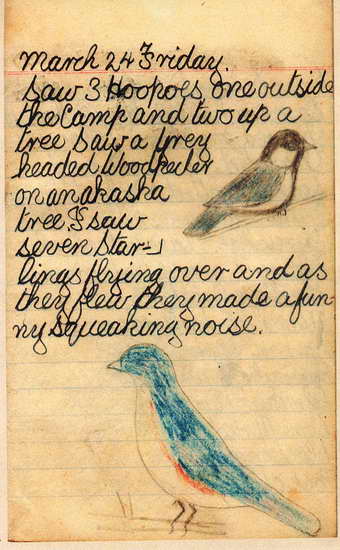 March 24 Friday.
Saw 3 Hoopoes one outside
the Camp and two up a
tree saw a grey
headed Woodpecker
on an akasha
tree. I saw
seven Star-
lings flying over and as
they flew they made a fun-
ny squeaking noise.